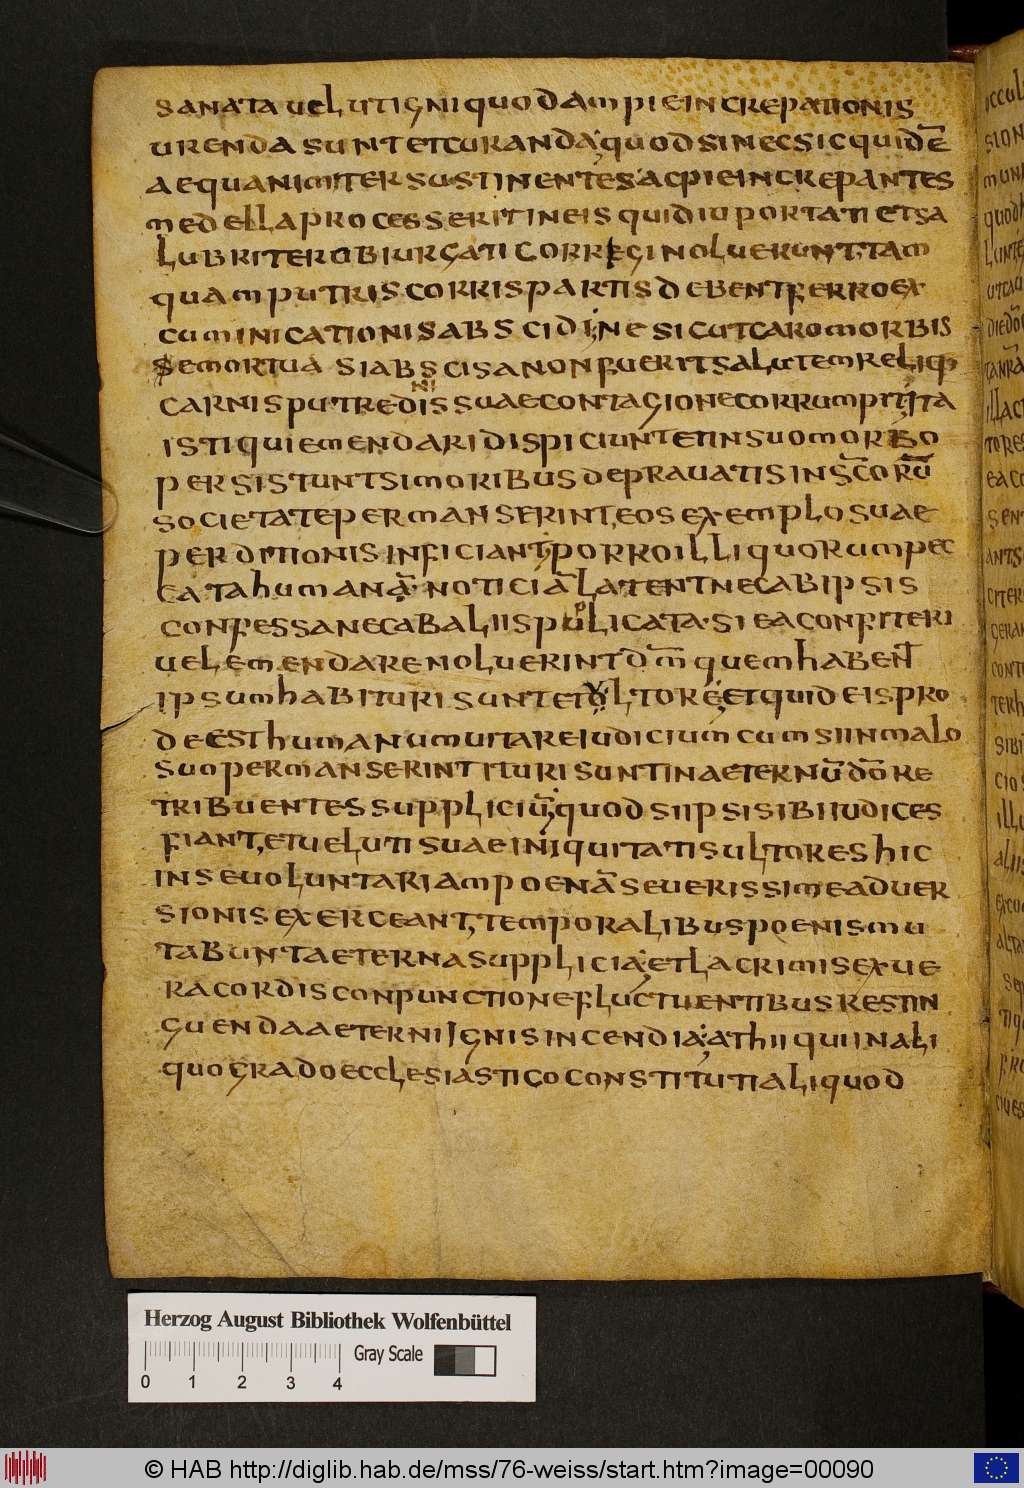 sanata uelut igni quodam pie increpationis
urenda sunt et curanda quod si nec sic quidē
aequanimiter sustinentes ac pie increpantes
medella processerit in eis qui diu portati et sa
lubriter obiurgati corregi noluerunt tam
quam putris corris partis debent ferro ex
cuminicationis abscidi ne sicut caro morbis
semortua si abscisa non fuerit salutem reliq
ni
carnis putredis suae contagione corrumpit ita
isti qui emendari dispiciunt et in suo morbo
persistunt si moribus deprauatis in sc̄orū
societate permanserint eos exemplo suae
perditionis inficiant porro illi quorum pec
cata humanā noticiā latent nec ab ipsis
confessa nec ab aliis puplicata si ea confiteri
uel emendare noluerint dm̄ quem habent
ipsum habituri sunt et ultorē et quid eis pro
deest humanum uitare iudicium cum si in malo
suo permanserint ituri sunt in aeternū dō re
tribuentes suppliciū quod si ipsi sibi iudices
fiant et ueluti suae iniquitatis ultores hic
in se uoluntariam poenā seuerissime aduer
sionis exerceant temporalibus poenis mu
tabunt aeterna supplicia et lacrimis ex ue
ra cordis conpunctione fluctuentibus restin
guenda aeterni ignis incendia at hii qui in ali
quo grado ecclesiastico constituti aliquod
Herzog August Bibliothek Wolfenbüttel
Gray Scale
0 1 2 3 4
© HAB http://diglib.hab.de/mss/76-weiss/start.htm?image=00090